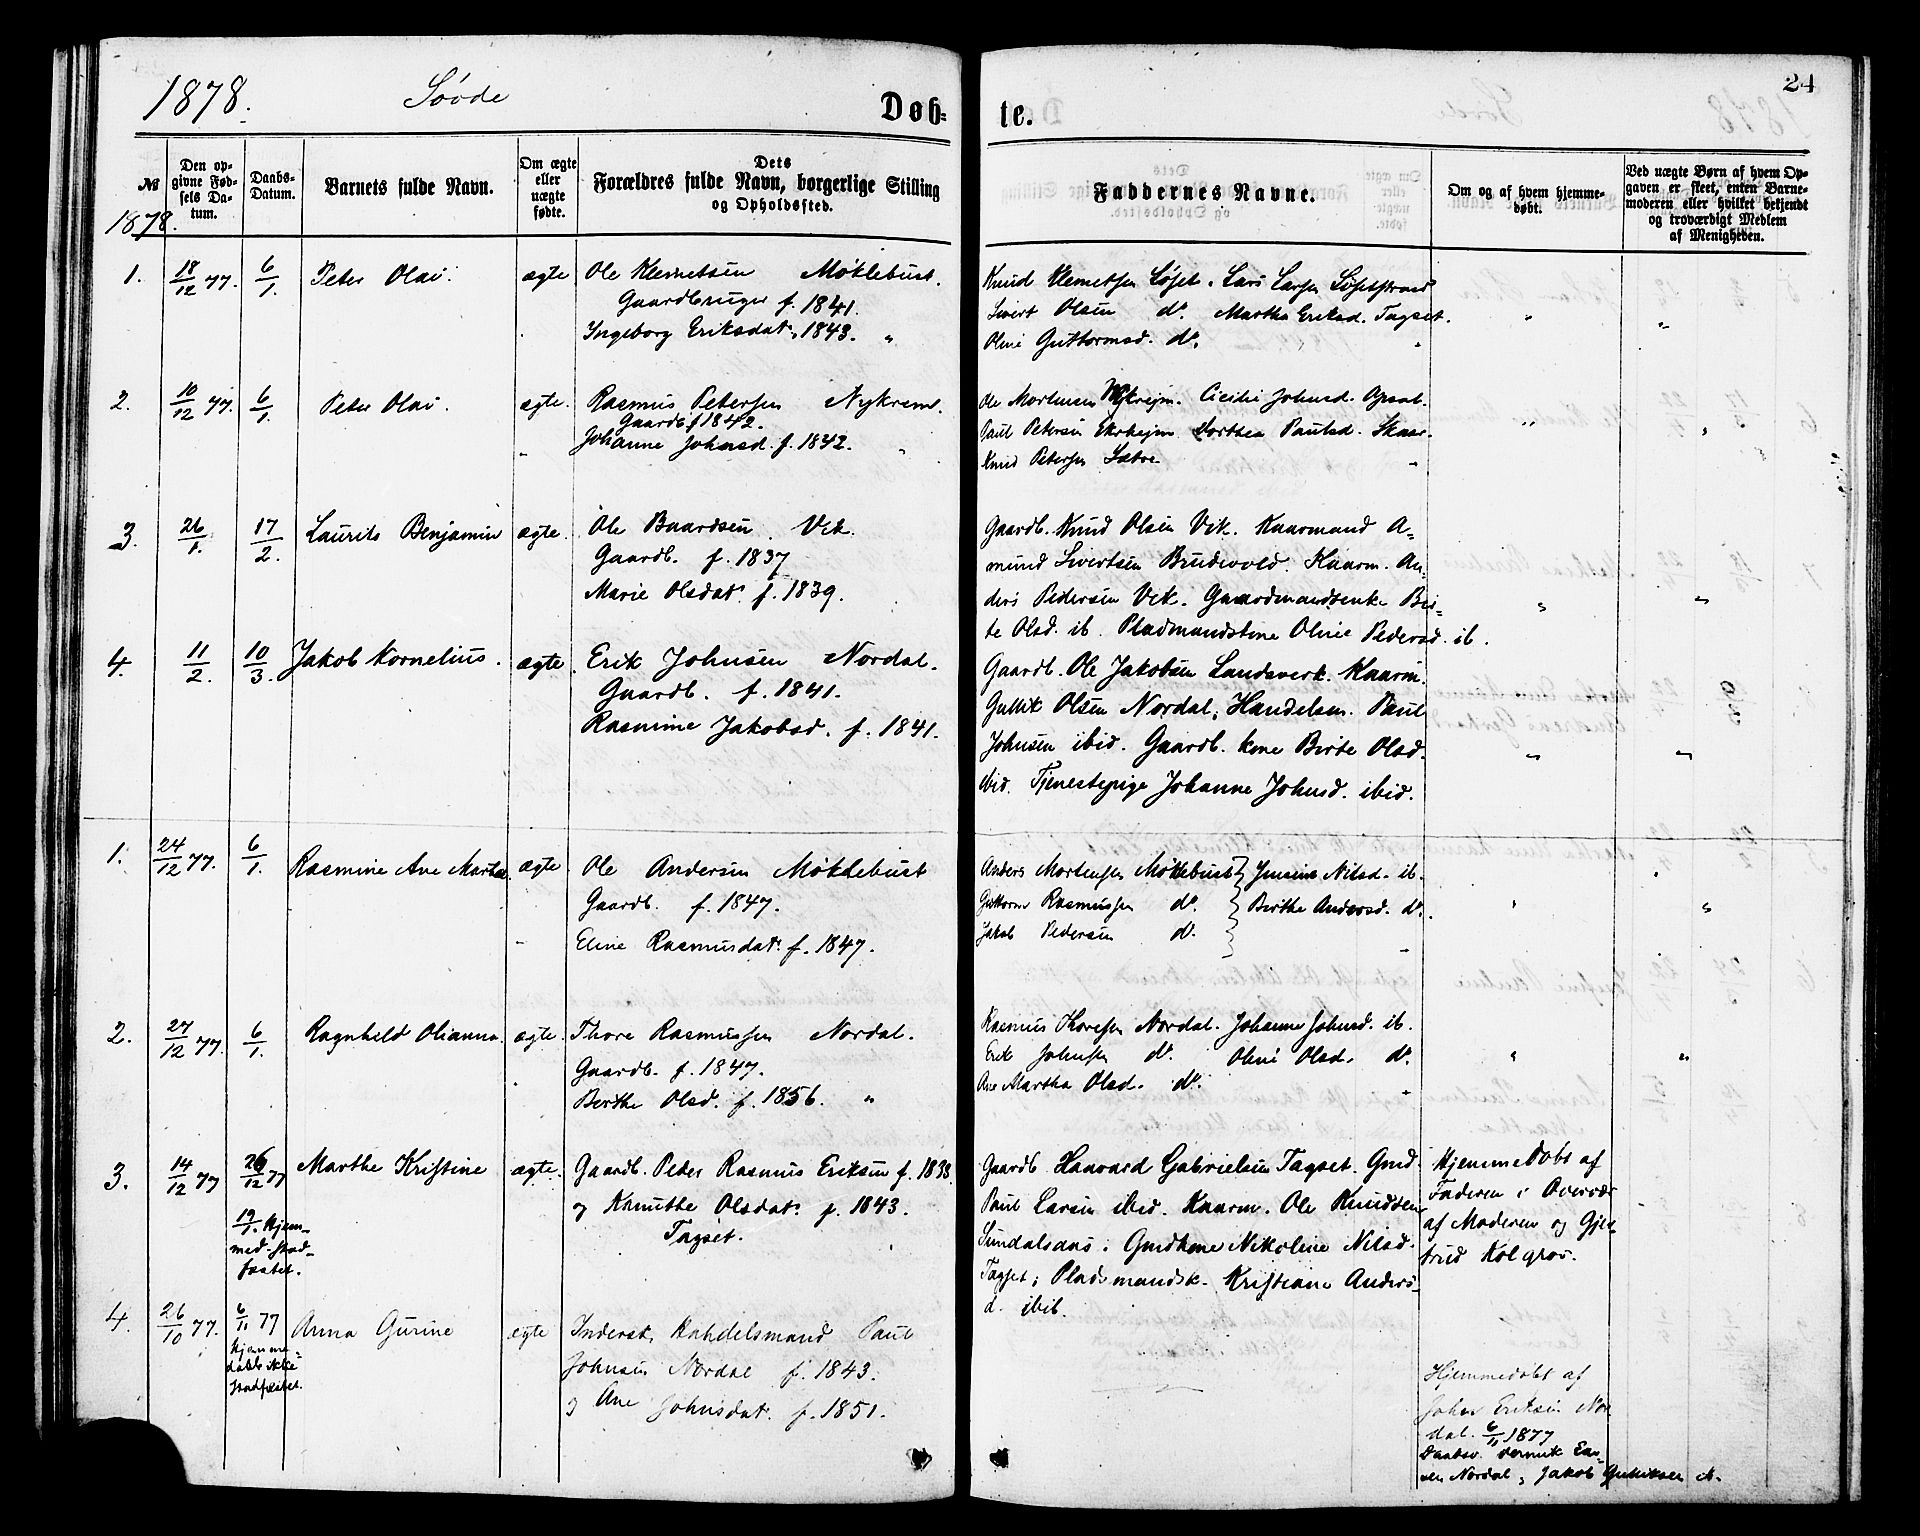 1878. Søvde Døb-
№
Den op-
givne Fød-
sels Da-
tum.
Daabs-
Datum.
Barnets fulde Navn.
Om ægte
eller
uægte
fødte.
Dets
Forældres fulde Navn, borgerlige Stilling
og Opholdssted.
1878.
1. 18/12 77. 6/1. Peter Olai. ægte Ole Klemetsen Møklebust.
Gaardbruger f. 1841.
Ingeborg Eriksdatr, 1843. "
2. 10/12 77. 6/1 Peter Olai. ægte. Rasmus Petersen Nykrem.
Gaardb. f 1842.
Johanne Johnsd. f. 1842. "
3. 26/1. 17/2. Laurits Benjamin ægte. Ole Baardsen Vik.
Gaardb. f. 1837
Marie Olsdatr f. 1839.
4. 11/2. 10/3. Jakob Kornelius. ægte. Erik Johnsen Nordal.
Gaardb. f. 1841.
Rasmine Jakobsd. f. 1841.
1. 24/12 77. 6/1. Rasmine Ane Martha. ægte. Ole Andersen Møklebust
Gaardb. f. 1847.
Eline Rasmusdatr f. 1847.
2. 27/12 77. 6/1. Ragnhild Olianna. ægte. Thore Rasmussen Nordal.
Gaardb. f. 1847.
Berthe Olsd. f. 1856. "
3. 14/12 77 26/12 77 Marthe Kristine ægte. Gaardb. Peder Rasmus Eriksen f. 1838
19/1. Hjem-
med. stad-
fæstet.
og Knuthe Olsdatr f. 1843.
Tagset.
4. 26/10 77. 6/11 77 Anna Gurine ægte Inderst, Handelsmand Paul
Hjemme-
døbt ikke
stadfæstet.
Johnsen Nordal f. 1843.
og Ane Johnsdatr f. 1851.
te. 24
Faddernes Navne.
Om og af hvem hjemme-
døbt.
Ved uægte Børn af hvem Op-
gaven er skeet, enten Barne-
moderen eller hvilket bekjendt
og troværdigt Medlem
af Menigheden.
Knud Klemetsen Løset. Lars Larsen
Sivert Olsen do. Martha Eriksd. Tagset. " "
Oline Guttormsd. do.
Ole Mortensen Cicilie Johnsd.
Paul Petersen Dorthea Paulsd. Skaar. " "
Knud Petersen Sætre
Gaardb. Knud Olsen Vik. Kaarmand A-
mund Sivertsen Brudevold. Kaarm. An-
ders Pedersen Vik. Gaardmandsenke Bir- " "
te Olsd. ib. Pladsmandskone Oline Pedersd. ib.
Gaardb. Ole Jakobsen Landsverk. Kaarm.
Gullik Olsen Nordal, Handelsm. Paul
Johnsen ibid. Gaardb. kone Birte Olsd. " "
ibid. Tjenestepige Johanne Johnsd. ibid.
Anders Mortensen Møklebust Jensine Nilsd. ib.
Guttorm Rasmussen do. Birthe Andersd. do. " "
Jakob Pedersen do.
Rasmus Thoresen Nordal. Johanne Johnsd. ib.
Erik Johnsen do. Oline Olsd. do. " "
Ane Martha Olsd. do.
Gaardb. Haavard Gabrielsen Tagset. Gmd. Hjemmedøbt af
Paul Larsen ibid. Kaarm. Ole Knudsen Faderen i Overvær
Sundalsaas. Gmdkone Nikoline Nilsd. af Moderen og Gjer-
Tagset, Pladsmandsk. Kristiane Anders- trud Kolgrov.
d. ibid.
Hjemmedøbt af
John Eriksen Nor-
dal. 6/11 1877
Daabsv. Lar-
sen Nordal, Jakob Gulliksen